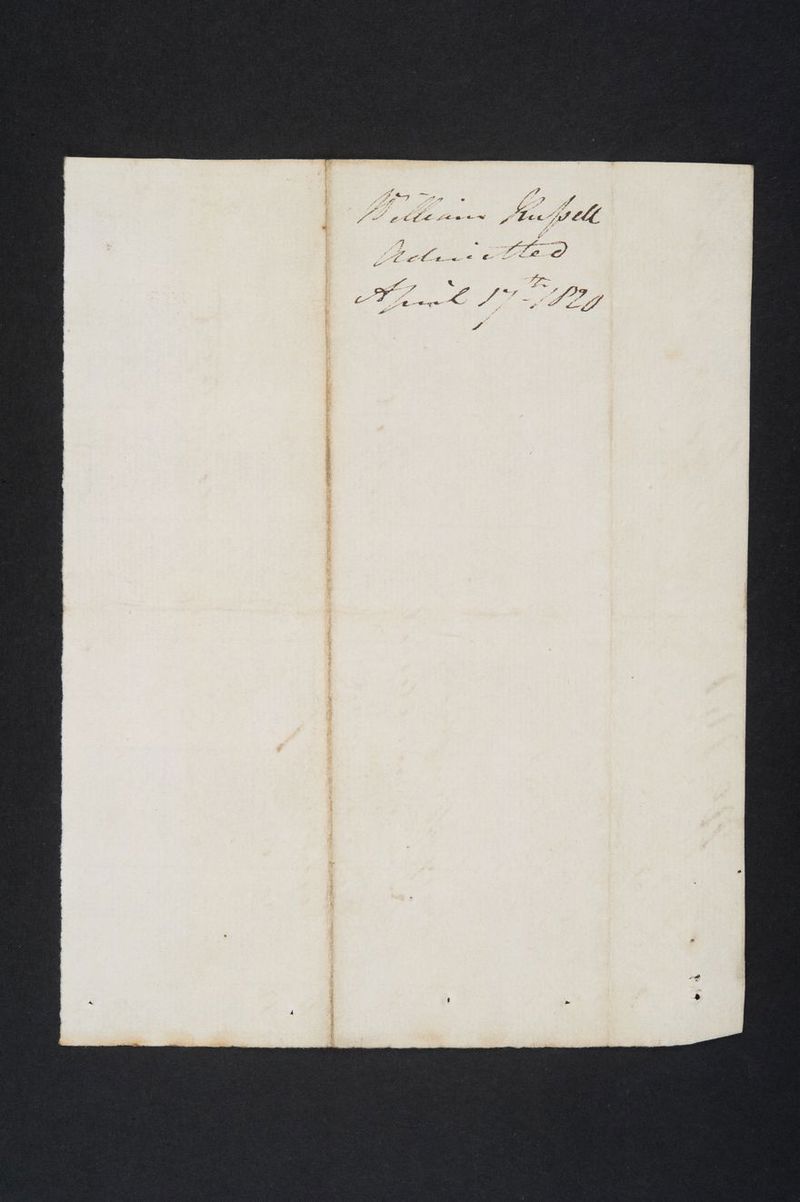 William Russell
Admitted
April 17th 1820